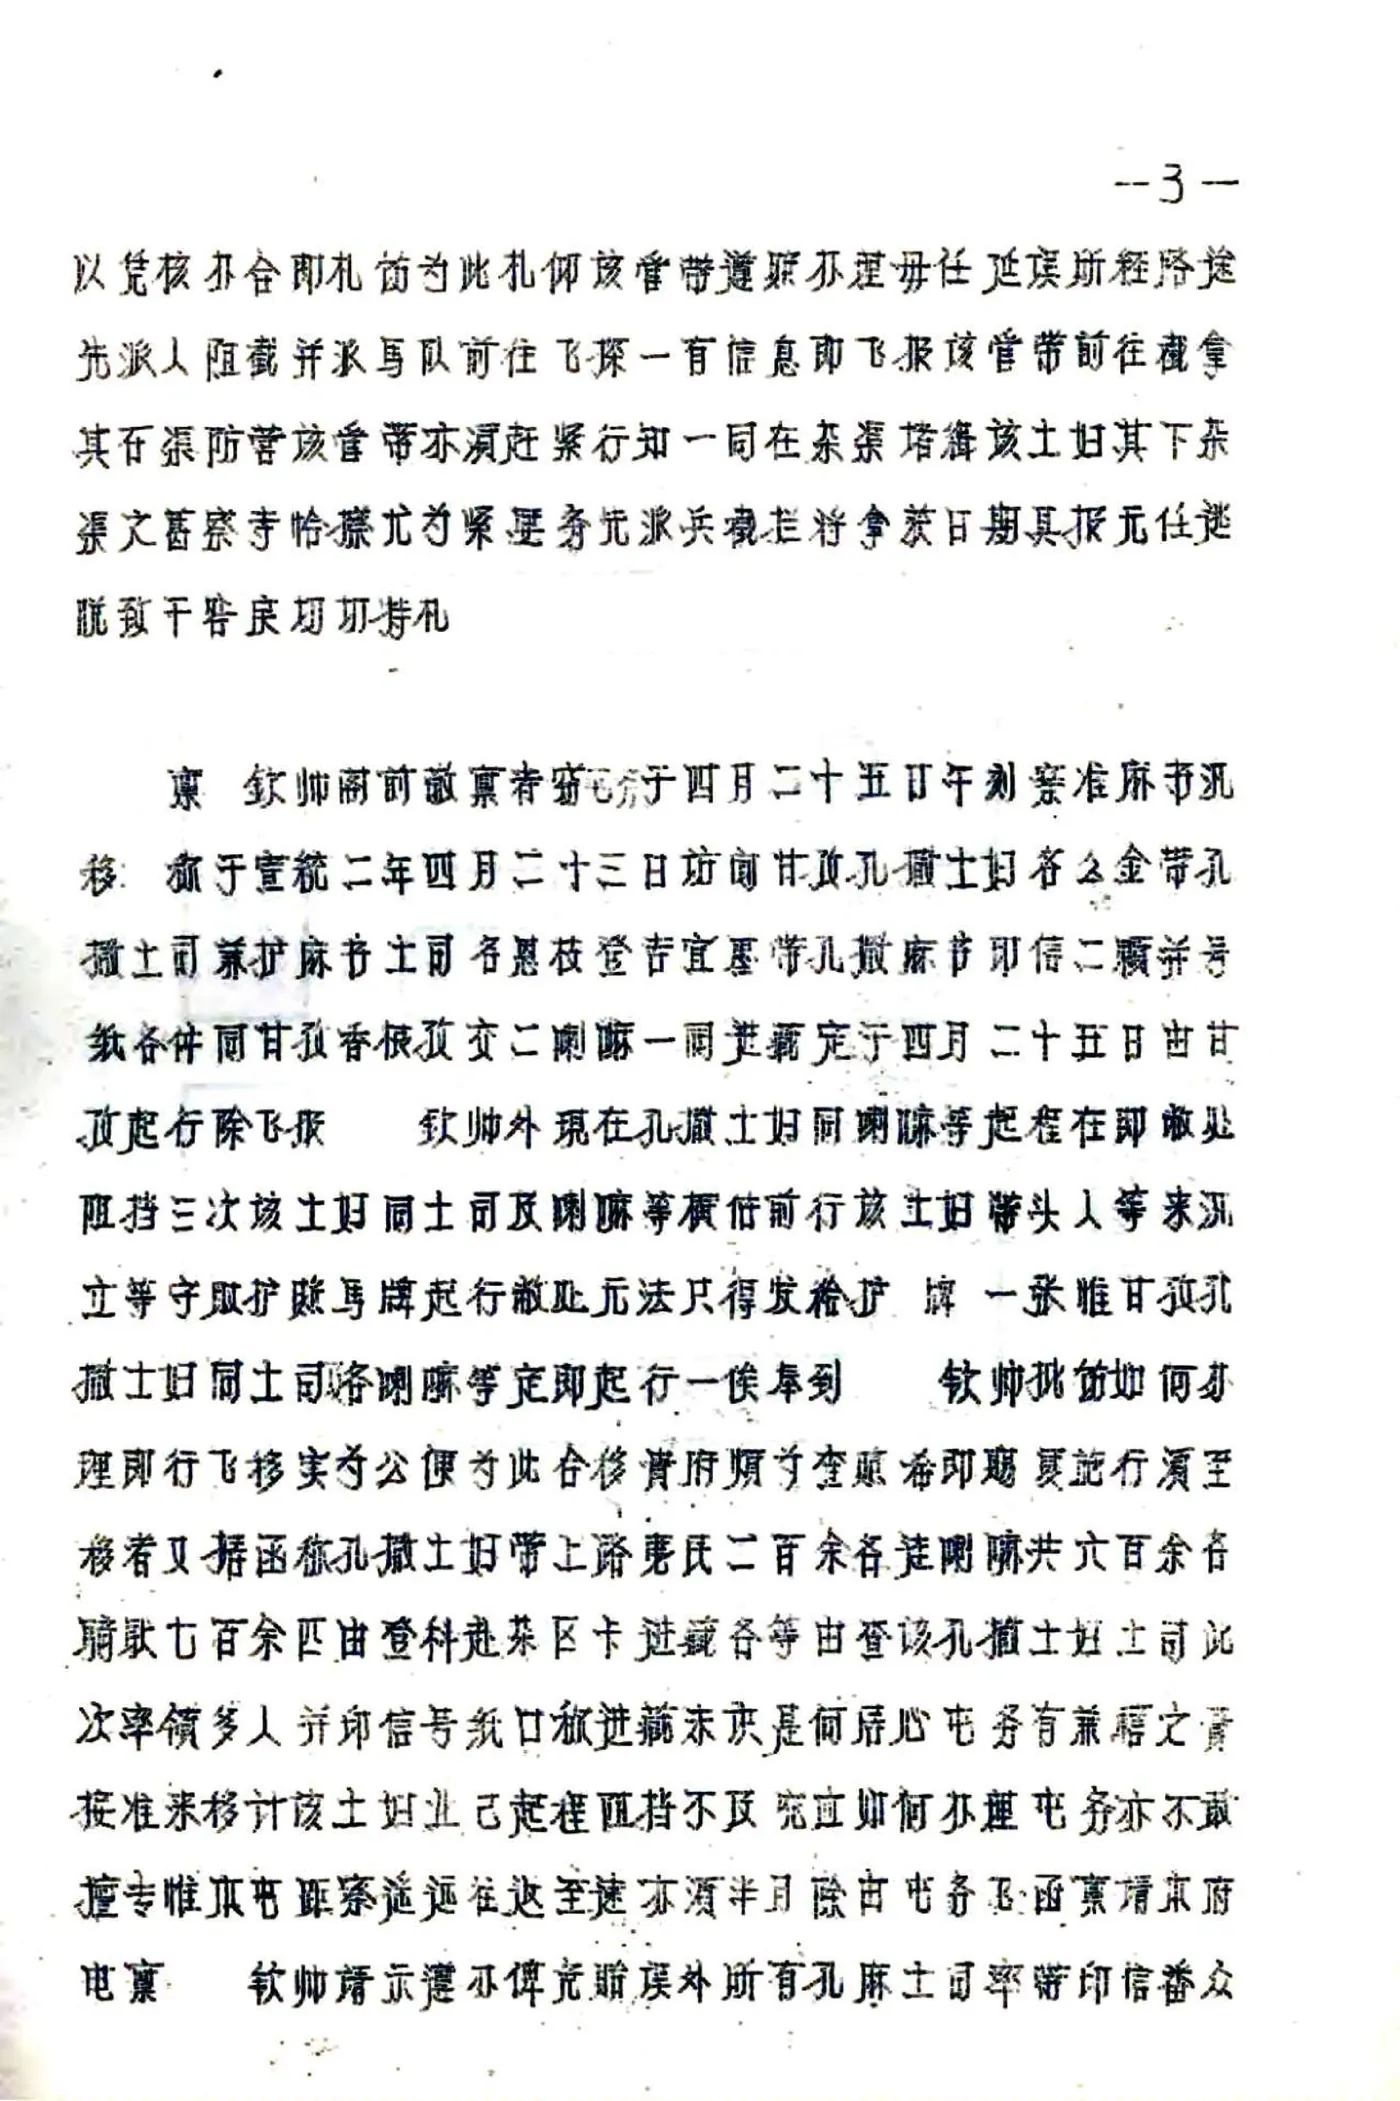 —3—
以凭核办合即札饬为此札仰该管带遵照办理毋任延误所经路途
先派人阻截并派马队前往飞探一有信息即飞报该管带前往截拿
其石渠防营该管带亦须赶紧行知一同在杂渠堵缉该土妇其下杂
渠文甚察寺恰擦尤为紧要务先派兵截拦将拿获日期具报无任逃
脱致干咎戾切切特札
禀 钦帅阁前敬禀者窃屯务于四月二十五日午刻案准麻书汛
移 称于宣统二年四月二十三日访闻甘孜孔撒土妇名么金带孔
撒土司兼护麻书土司名恩枝登吉宜墨带孔撒麻书印信二颗并号
纸各件同甘孜香根孜交二喇嘛一同进藏定于四月二十五日由甘
孜起行除飞报 钦帅外现在孔撒土妇同喇嘛等起程在即敝处
阻挡三次该土妇同土司及喇嘛等横估前行该土妇带头人等来汛
立等守取护照马牌起行敝处无法只得发给护 牌 一张惟甘孜孔
撒土妇同土司各喇嘛等定即起行一俟奉到 钦帅批饬如何办
理即行飞移实为公便为此合移贵府烦为查照希即赐复施行须至
移者又据函称孔撒土妇带上路夷民二百余名连喇嘛共六百余名
骑驮七百余匹由登科赴菜区卡进藏各等由查该孔撒土妇土司此
次率领多人并印信号纸口称进藏未识是何居心屯务有兼辖之责
接准来移计该土妇业己起程阻挡不及究应如何办理屯务亦不敢
擅专惟本屯距察遥远往返至速亦须半月除由屯务飞函禀请本府
电禀 钦帅请示遵办俾免贻误外所有孔麻土司率带印信番众